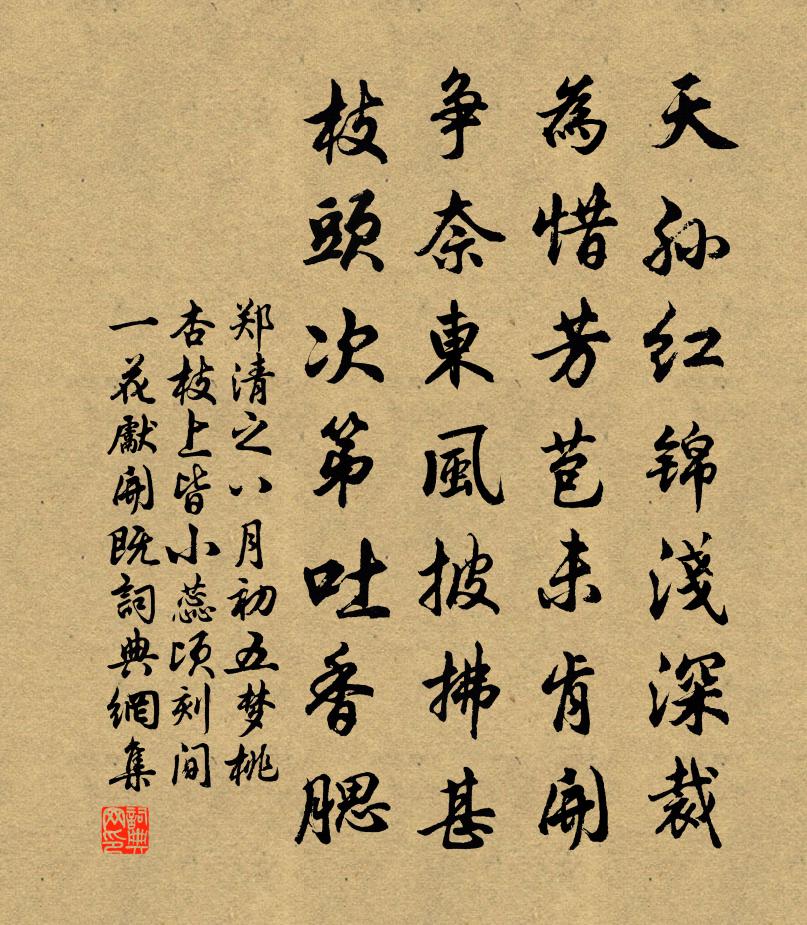 天孙红锦淺深裁
為惜芳苞未肯開
争奈東風披拂甚
枝頭次第吐香腮
郑清之八月初五梦桃
杏枝上皆小蕊顷刻间
一花獻開既詞典網集
詞典网印